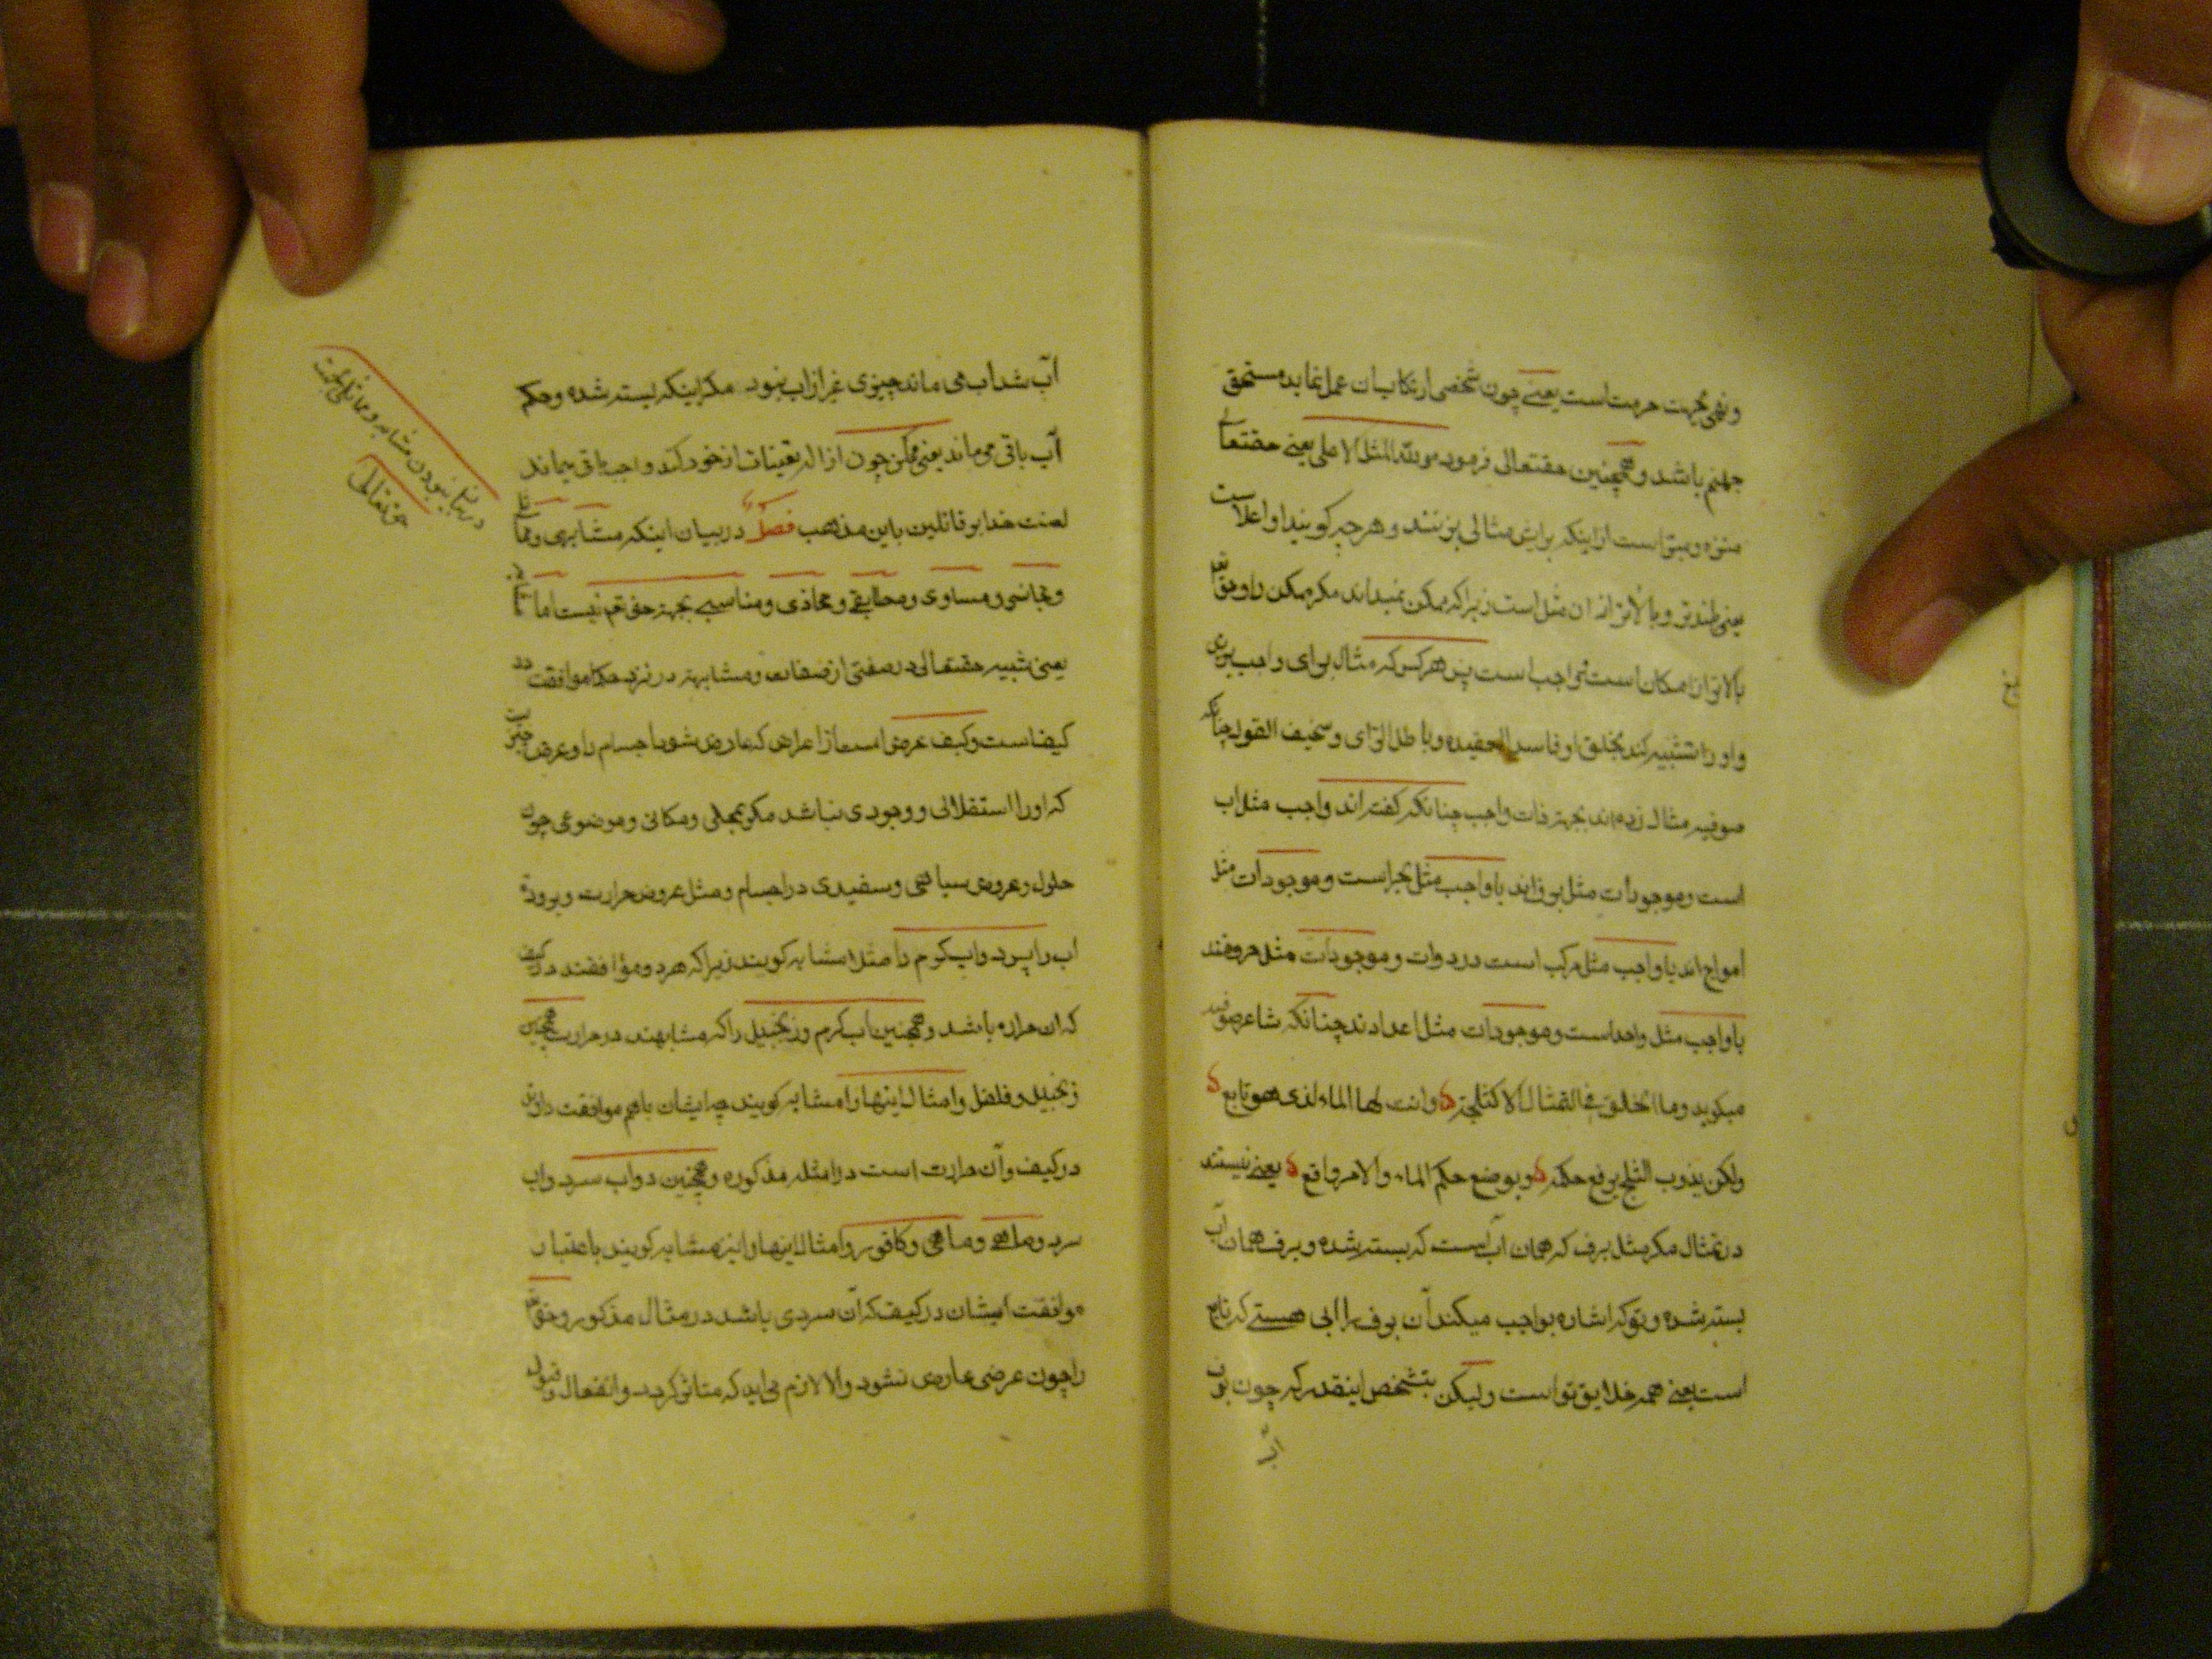 ونهی بجهت حرمت است یعنے چون شخصی ارتکاب بان عمل نماید مستحق
جهنم باشد و همچنین حقتعالی فرمود و لله المثل الاعلی یعنے حقتعالی
منزه و مبرّا است از اینکه برایش مثالی بزنند و هر چه کویند او اعلا است
یعنی بلندتر و بالاتر از ان مثل است زیرا که ممکن نمیداند مکر ممکن را و حق تعم
بالاتر از امکان است واجب است پس هر کس که مثال برای واجب
و او را تشبیه کند بخلق او فاسد العقیده و باطل الرّای و سخیف القول چنانکه
صوفیه مثال زده اند بجهة ذات واجب چنانکه کفته اند واجب مثل اب
است و موجودات مثل برف اند یا واجب مثل بحر است و موجودات مثل
امواج اند یا واجب مثل مرکب است در دوات و موجودات مثل حروفند
یا واجب مثل واحد است و موجودات مثل اعدادند چنانکه شاعر صوفیه
میکوید وما الخلق فی التمثال الا کثلجة وانت لها الماء الذی هو تابع
ولکن یذوب الثلج یرفع حکمه ویوضع حکم الماء والامر واقع یعنے نیستند
در تمثال مکر مثل برف که همان آب است که بسته شده و برف همان آب
بسته شده و تو که اشاره بواجب میکند آن برف را ابی هستے که تابع
است یعنے همه خلایق تو است ولیکن بتشخص اینقدر که چون برف
آب
آب شد اب می ماند چیزی غیر از اب نبود مکر اینکه بسته شده و حکم
آب باقی می ماند یعنی ممکن چون ازاله تعینات از خود کند واجب باقی میماند
لعنت خدا بر قائلین باین مذهب فصل در بیان اینکه مشابهی و مماثلی
و مجانسی و مساوی و مطابقے و محاذی و مناسبے بجهة حق تعم نیست اما
یعنی شبیه حقتعالی در صفتی از صفات و مشابهة در نزد حکما موافقت در
کیف است و کیف عرضی است از اعراض که عارض بشود اجسام را و عرض
که او را استقلالی و وجودی نباشد مکر بمحلی و مکانی و موضوعی چون
حلول و عروض سیاهی و سفیدی در اجسام و مثل عروض حرارت و برودة
اب را پس دو اب کرم را مثلا مشابه کویند زیرا که هر دو موافقند در کیف
که ان حراره باشد و همچنین اب کرم و زنجبیل را که مشابهند در حرارت همچنین
زنجبیل و فلفل و امثال اینها را مشابه کویند چه ایشان باهم موافقت دارند
در کیف و آن حرارت است در امثله مذکوره و همچنین دو اب سرد و اب
سرد و ماهے و ماهی و کافور و امثال اینها را نیز مشابه کویند باعتبار
موافقت ایشان در کیف که آن سردی باشد در مثال مذکور و حق تعم
را چون عرضی عارض نشود والا لازم می اید که متاثر کردد و انفعال و قبول
در بیان نبودن مشابه و مماثلی بجهت
حق تعالی